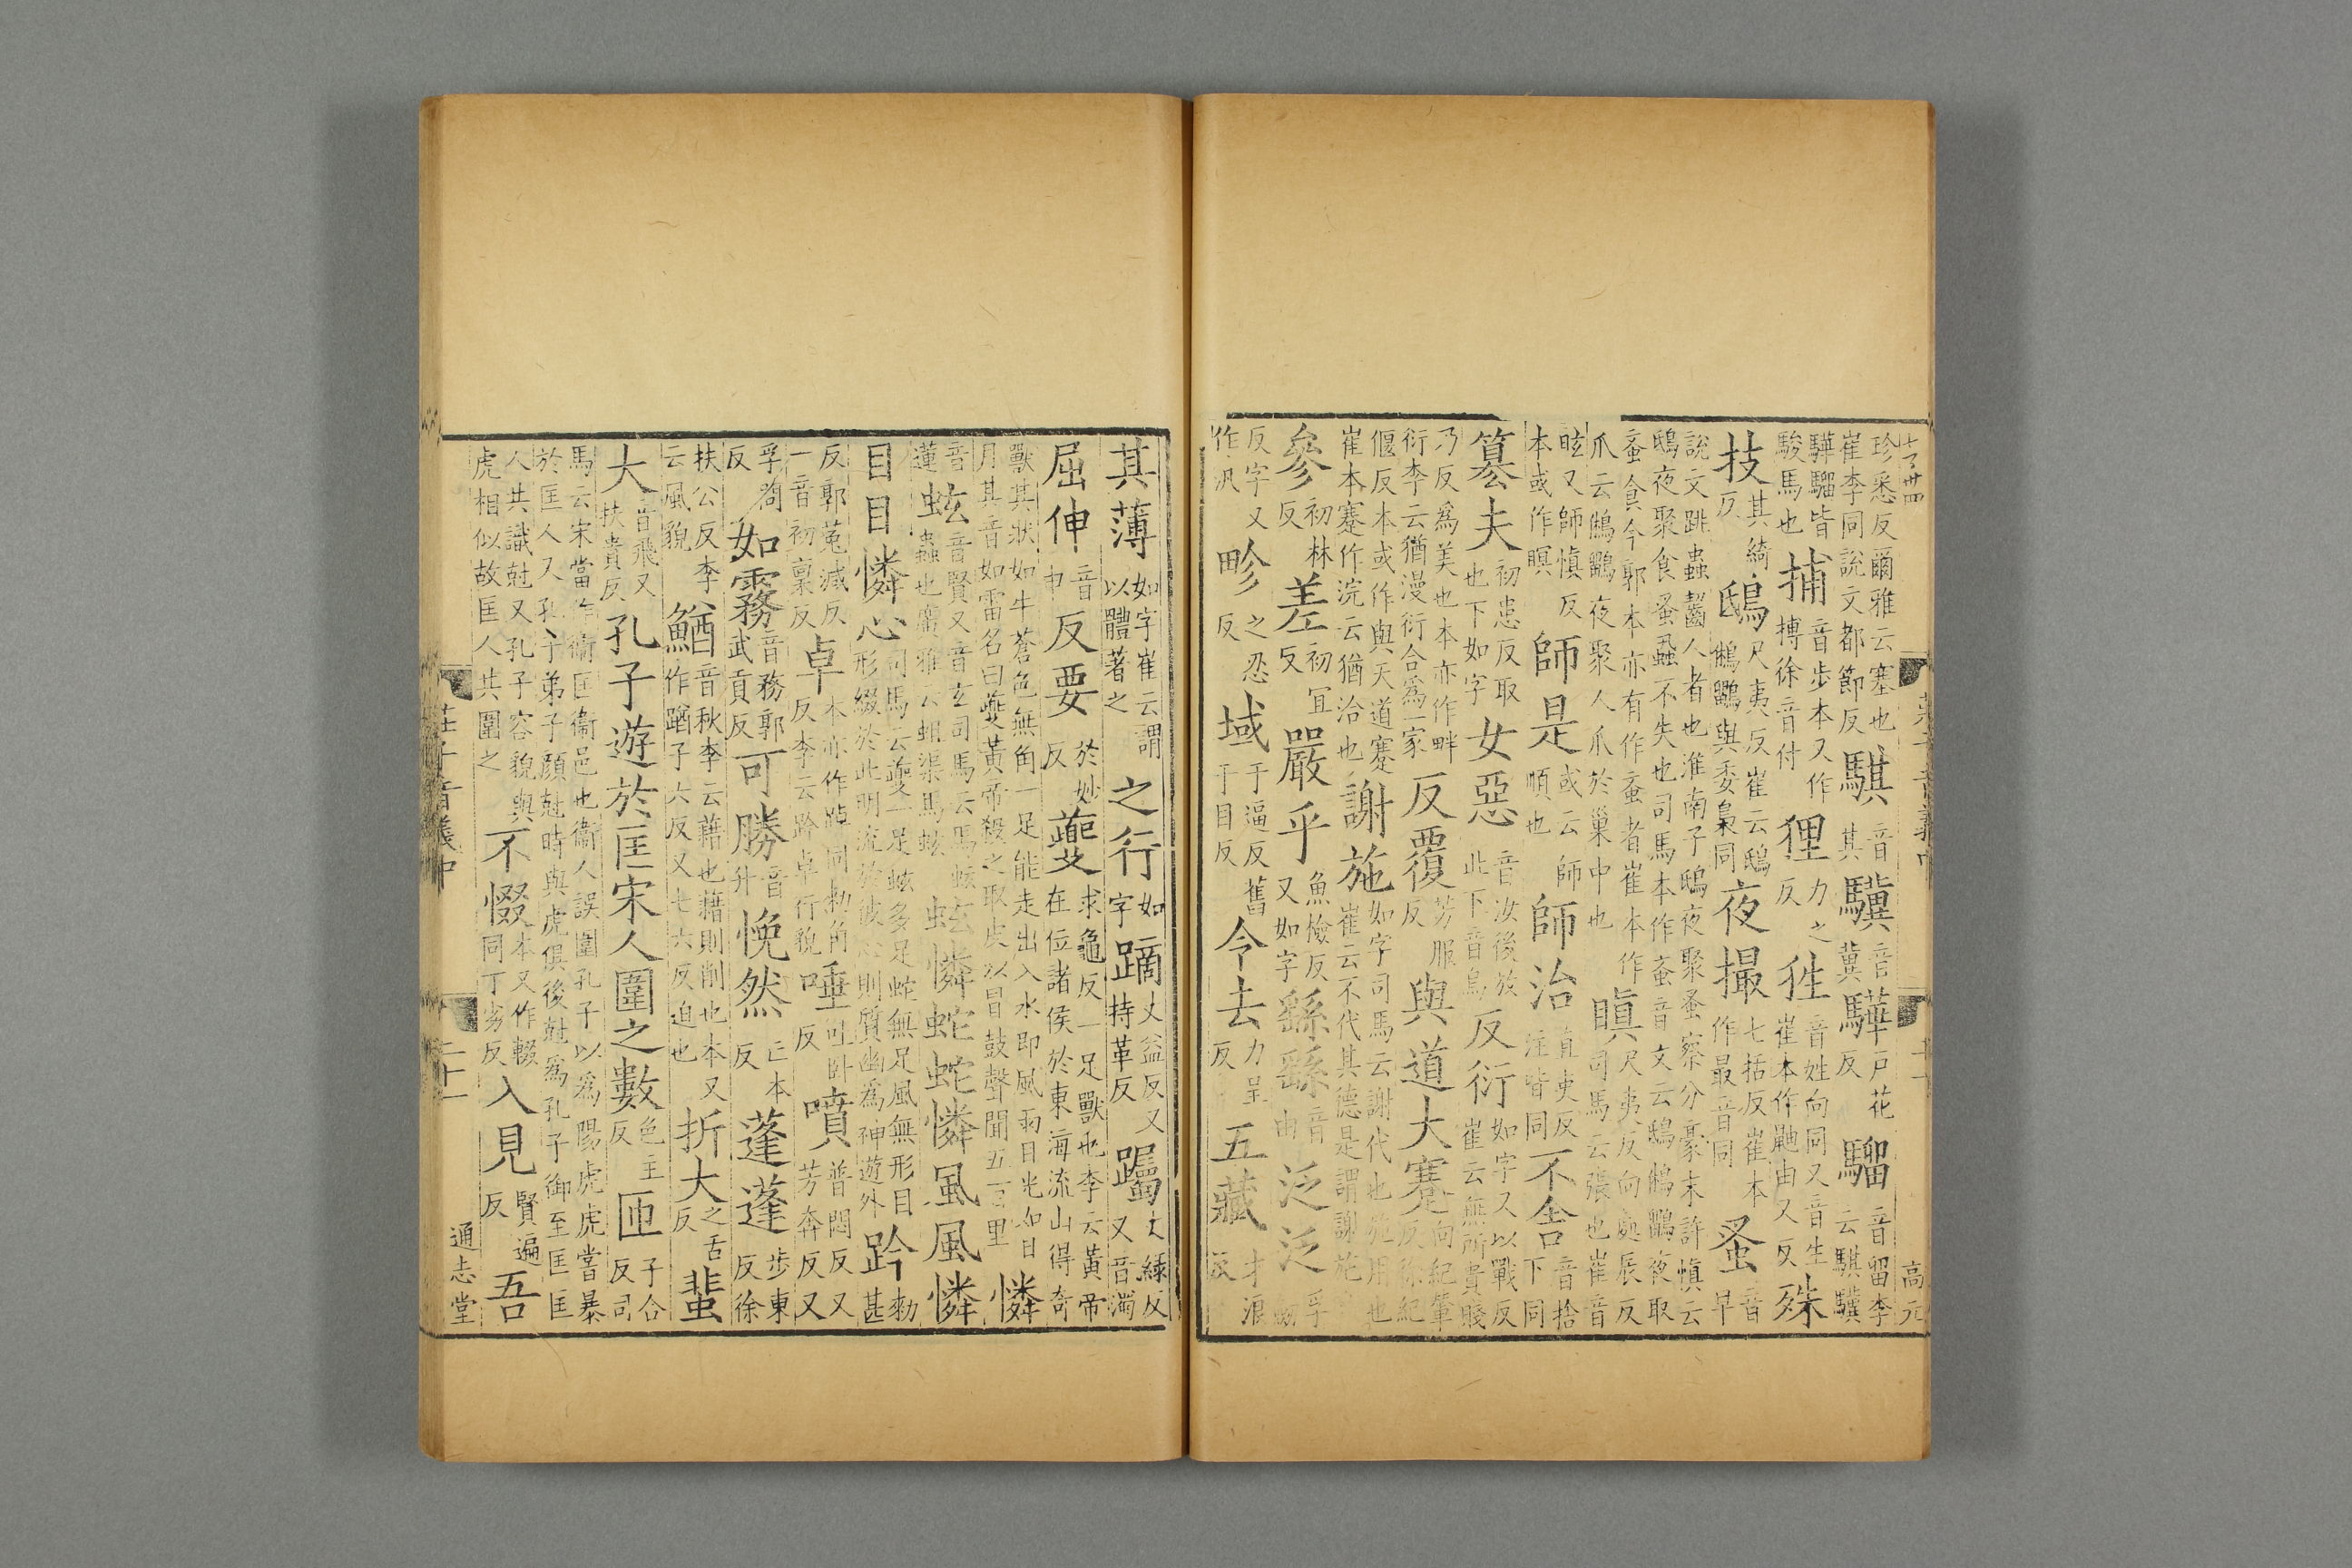 七百卌
高元
珍悉反爾雅云塞也崔李同說文都節反騏音其驥音冀驊戶花反騮音留李云騏驥
驊騮皆駿馬也捕音步本又作搏徐音付狸力之反狌音姓向同又音生崔本作鼬由又反殊
技其綺反鴟尺夷反崔云鴟鵂鶹與委梟同夜撮七括反崔本作最音同蚤音早
說文跳蟲齧人者也淮南子鴟夜聚蚤察分豪末許慎云鴟夜聚食蚤蝨不失也司馬本作蚉音文云鴟鵂鶹夜取
蚉食今郭本亦有作蚉者崔本作爪云鵂鶹夜聚人爪於巢中也瞋尺夷反向處辰反司馬云張也崔音
眩又師慎反本或作瞑師是或云師順也師治直吏反注皆同不舍音捨下同
篡夫初患反取也下如字女惡音汝後放此下音烏反衍如字又以戰反崔云無所貴賤
乃反爲美也本亦作畔衍李云猶漫衍合爲一家反覆芳服反與道大蹇向紀輦反徐紀
偃反本或作與天道蹇崔本蹇作浣云猶洽也謝施如字司馬云謝代也施用也崔云不代其德是謂謝施
參初林反差初宜反嚴乎魚檢反又如字繇繇音由泛泛孚劒
反字又作汎畛之忍反域于逼反舊于目反令去力呈反五藏才浪反
其薄如字崔云謂以體著之之行如字蹢丈益反又持革反躅丈綠反又音濁
屈伸音申反要於妙反夔求龜反一足獸也李云黃帝在位諸侯於東海流山得奇
獸其狀如牛蒼色無角一足能走出入水即風雨目光如日月其音如雷名曰夔黃帝殺之取皮以冒鼓聲聞五百里憐
音蓮蚿音賢又音玄司馬云馬蚿蟲也廣雅云蛆渠馬蚿蚿憐蛇蛇憐風風憐
目目憐心司馬云夔一足蚿多足蛇無足風無形目形綴於此明流於彼心則質幽爲神遊外趻勑甚
反郭菟減反一音初稟反卓本亦作踔同勑角反李云趻卓行貌唾吐卧反噴普悶反又芳奔反又
孚芻反如霧音務郭武貢反可勝音升悗然亡本反蓬蓬步東反徐
扶公反李云風貌鰌音秋李云藉也藉則削也本又作蹵子六反又七六反迫也折大之舌反蜚
大音飛又扶貴反孔子遊於匡宋人圍之數色主反匝子合反司
馬云宋當作衛匡衛邑也衛人誤圍孔子以爲陽虎虎嘗暴於匡人又孔子弟子顏尅時與虎俱後尅爲孔子御至匡匡
人共識尅又孔子容貌與虎相似故匡人共圍之不惙本又作輟同丁劣反入見賢遍反吾
莊子音義中
二十一
通志堂